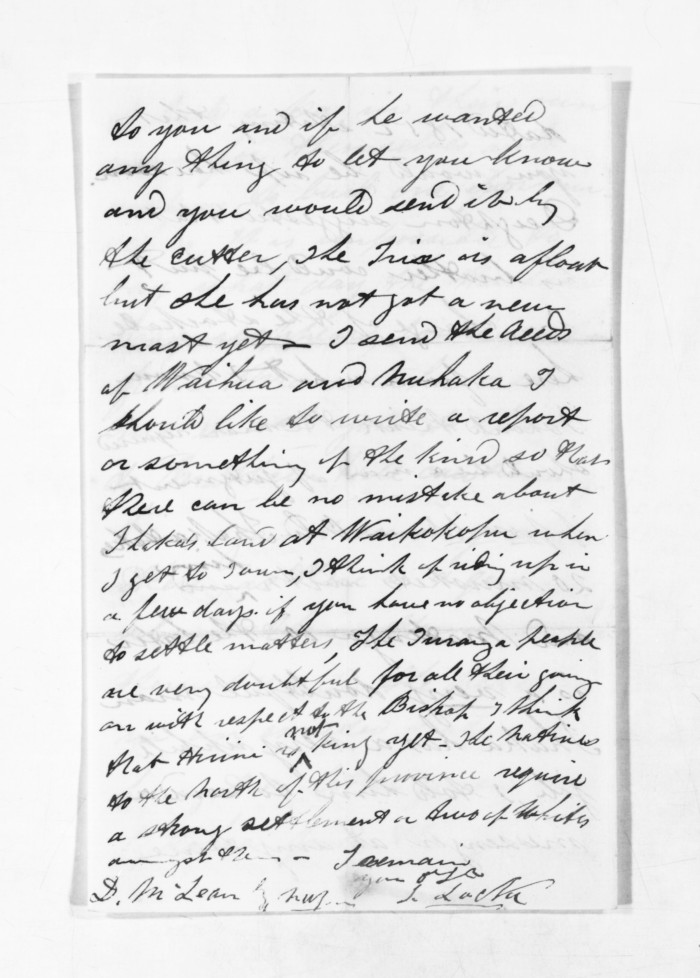 to you and if he wanted
any thing to let you know
and you would send it by
the cutter, The Trio is afloat
but she has not got a new
mast yet - I send the deeds
of Waihua and Nuhaka I
should like to write a report
or something of the kind so that
there can be no mistake about
Ihaka's land at Waikokopu when
I get to Town, I think of riding up in
a few days if you have no objection
to settle matters, The Turanga people
are very doubtful for all their going
on with respect to the Bishop I think
that is not king yet - The natives
to the north of this province require
a strong settlement or two of Whites
amongst them - I remain
your
D. McLean Esq S. Locke